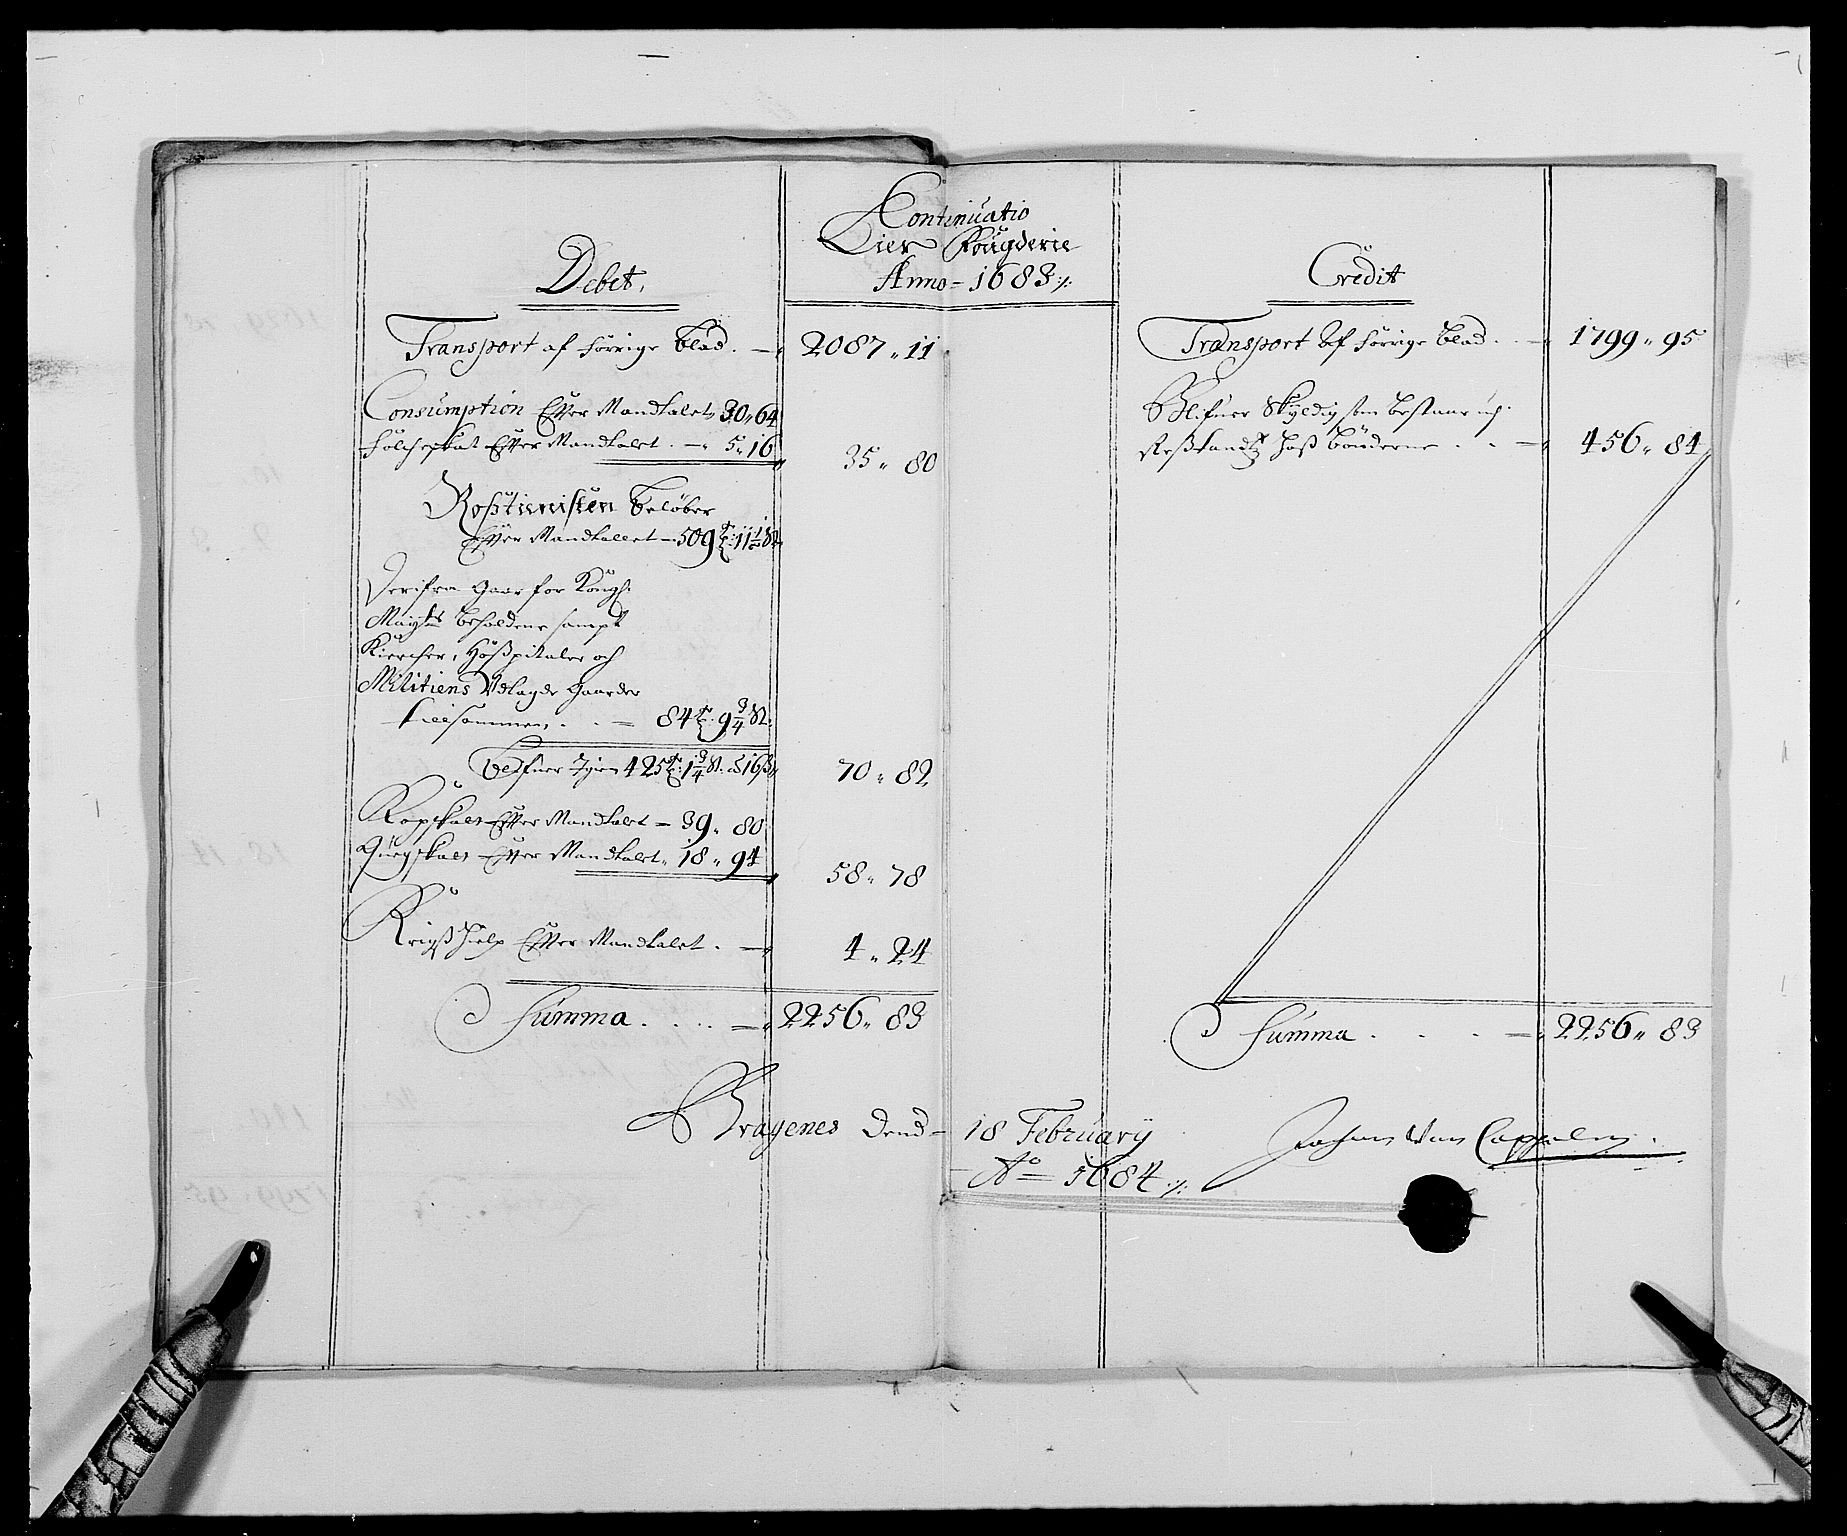 Continuatio
Lier Fougderie
Anno = 1683 ./.
Debet.
Transport af forrige blad . — 2087 „ 11
Consumption Effter Mandtalet 30 „ 64
folcheskat Effter Mandtalet . — 5 „ 16
35 „ 80
Roßtienisten beløber
Effter Mandtallet — 509
Derifra gaar for Kongl:
Mayts beholdene sampt
Kiercher, Hoßpitaler och
Militiens Udlagde gaarder
tilsammen . . = 84
blifuer Igien 425
70 „ 82
Kopskat Effter Mandtalet = 39 „ 80
Qvegskat Effter Mandtalet „ 18 „ 94
58 „ 78
Krigßhielp Effter Mandtalet . — 4 „ 24
Summa . . . . — 2256 „ 83
Credit
Transport Af forrige blad . . — 1799 „ 95
Blifuer Skyldig som bestaar udj
Reßtandtz hoß bønderne . . — 456 „ 84
Summa . . . — 2256 „ 83
Bragenes Dend = 18 February
Ao = 1684 ./.
Johan Van Cappelen .